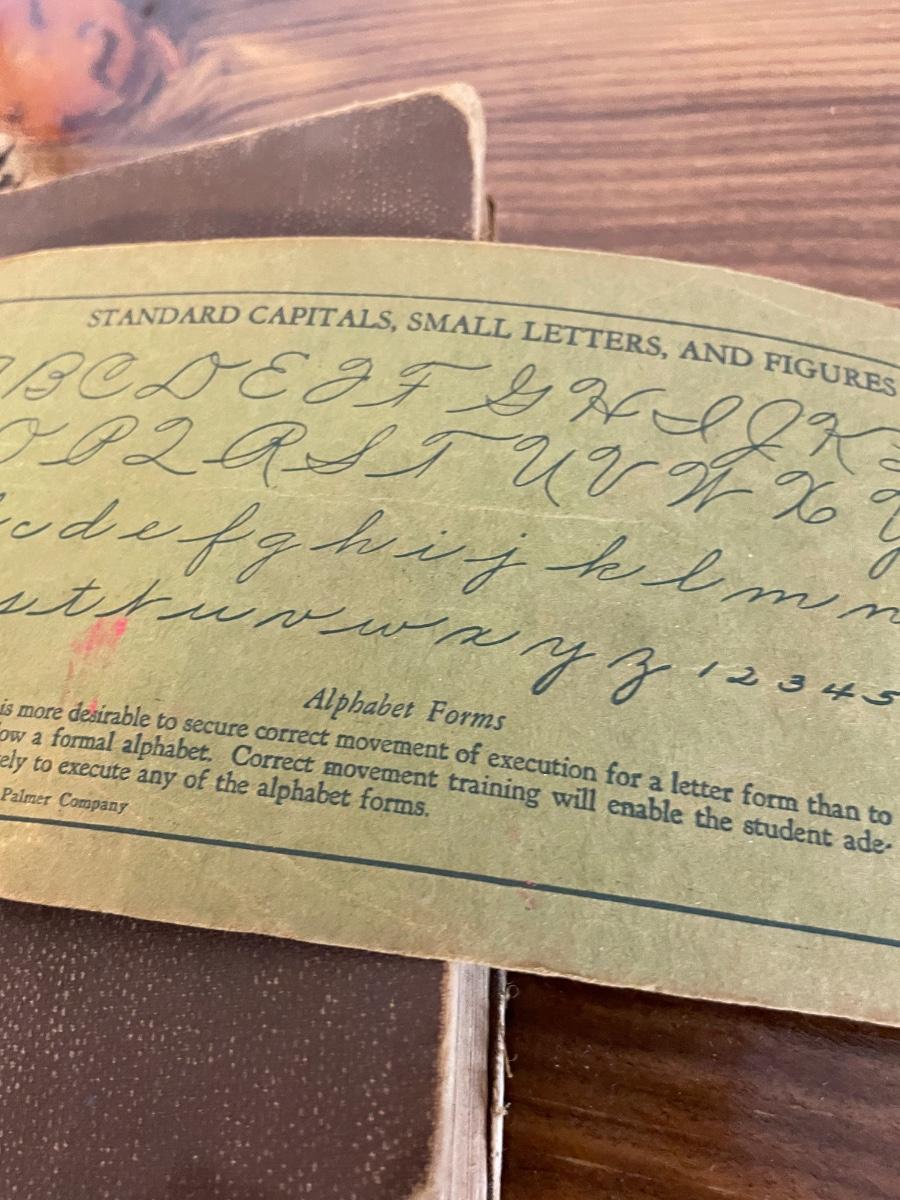 STANDARD CAPITALS, SMALL LETTERS, AND FIGURES
B C D E F F G H I J K
O P Q R S T U V W X Y
c d e f g h i j k l m n
s t t u v w x y z 1 2 3 4 5
Alphabet Forms
is more desirable to secure correct movement of execution for a letter form than to
a formal alphabet. Correct movement training will enable the student ade-
to execute any of the alphabet forms.
Palmer Company